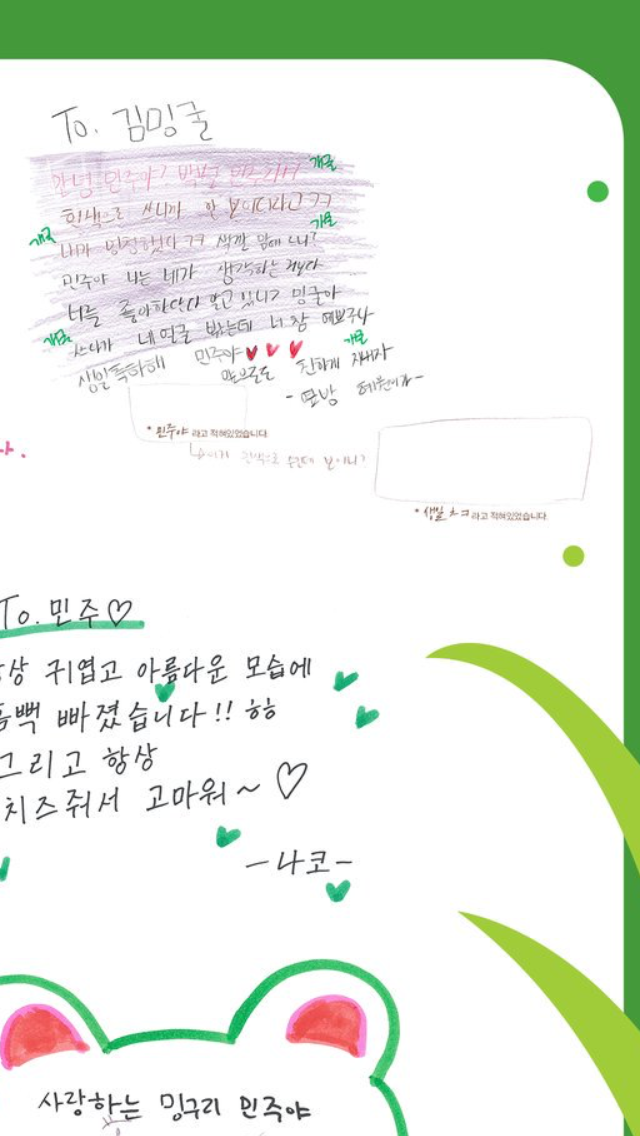 To. 김밍굴
개굴
안녕 민주야? 박보검 민주라서
흰색으로 쓰니까 안 보이더라고 ㅋㅋ
개굴
개굴
내가 멍청했다 ㅋㅋ 색깔 맘에 드니?
민주야 나는 네가 생각하는 거보다
너를 좋아한단다 알고 있니? 밍굴아
개굴
쓰다가 네 얼굴 봤는데 너 참 예쁘구나
개굴
생일 축하해 민주야
앞으로도 친하게 지내자
- 옆방 예원이가 -
* 민주야 라고 적혀있었습니다.
흰색으로 썼는데 보이니?
* 생일 ㅊㅋ 라고 적혀있었습니다.
To. 민주♡
상 귀엽고 아름다운 모습에
뻑 빠졌습니다!! ㅎㅎ
그리고 항상
치즈줘서 고마워~ ♡
- 나코 -
사랑하는 밍구리 민주야